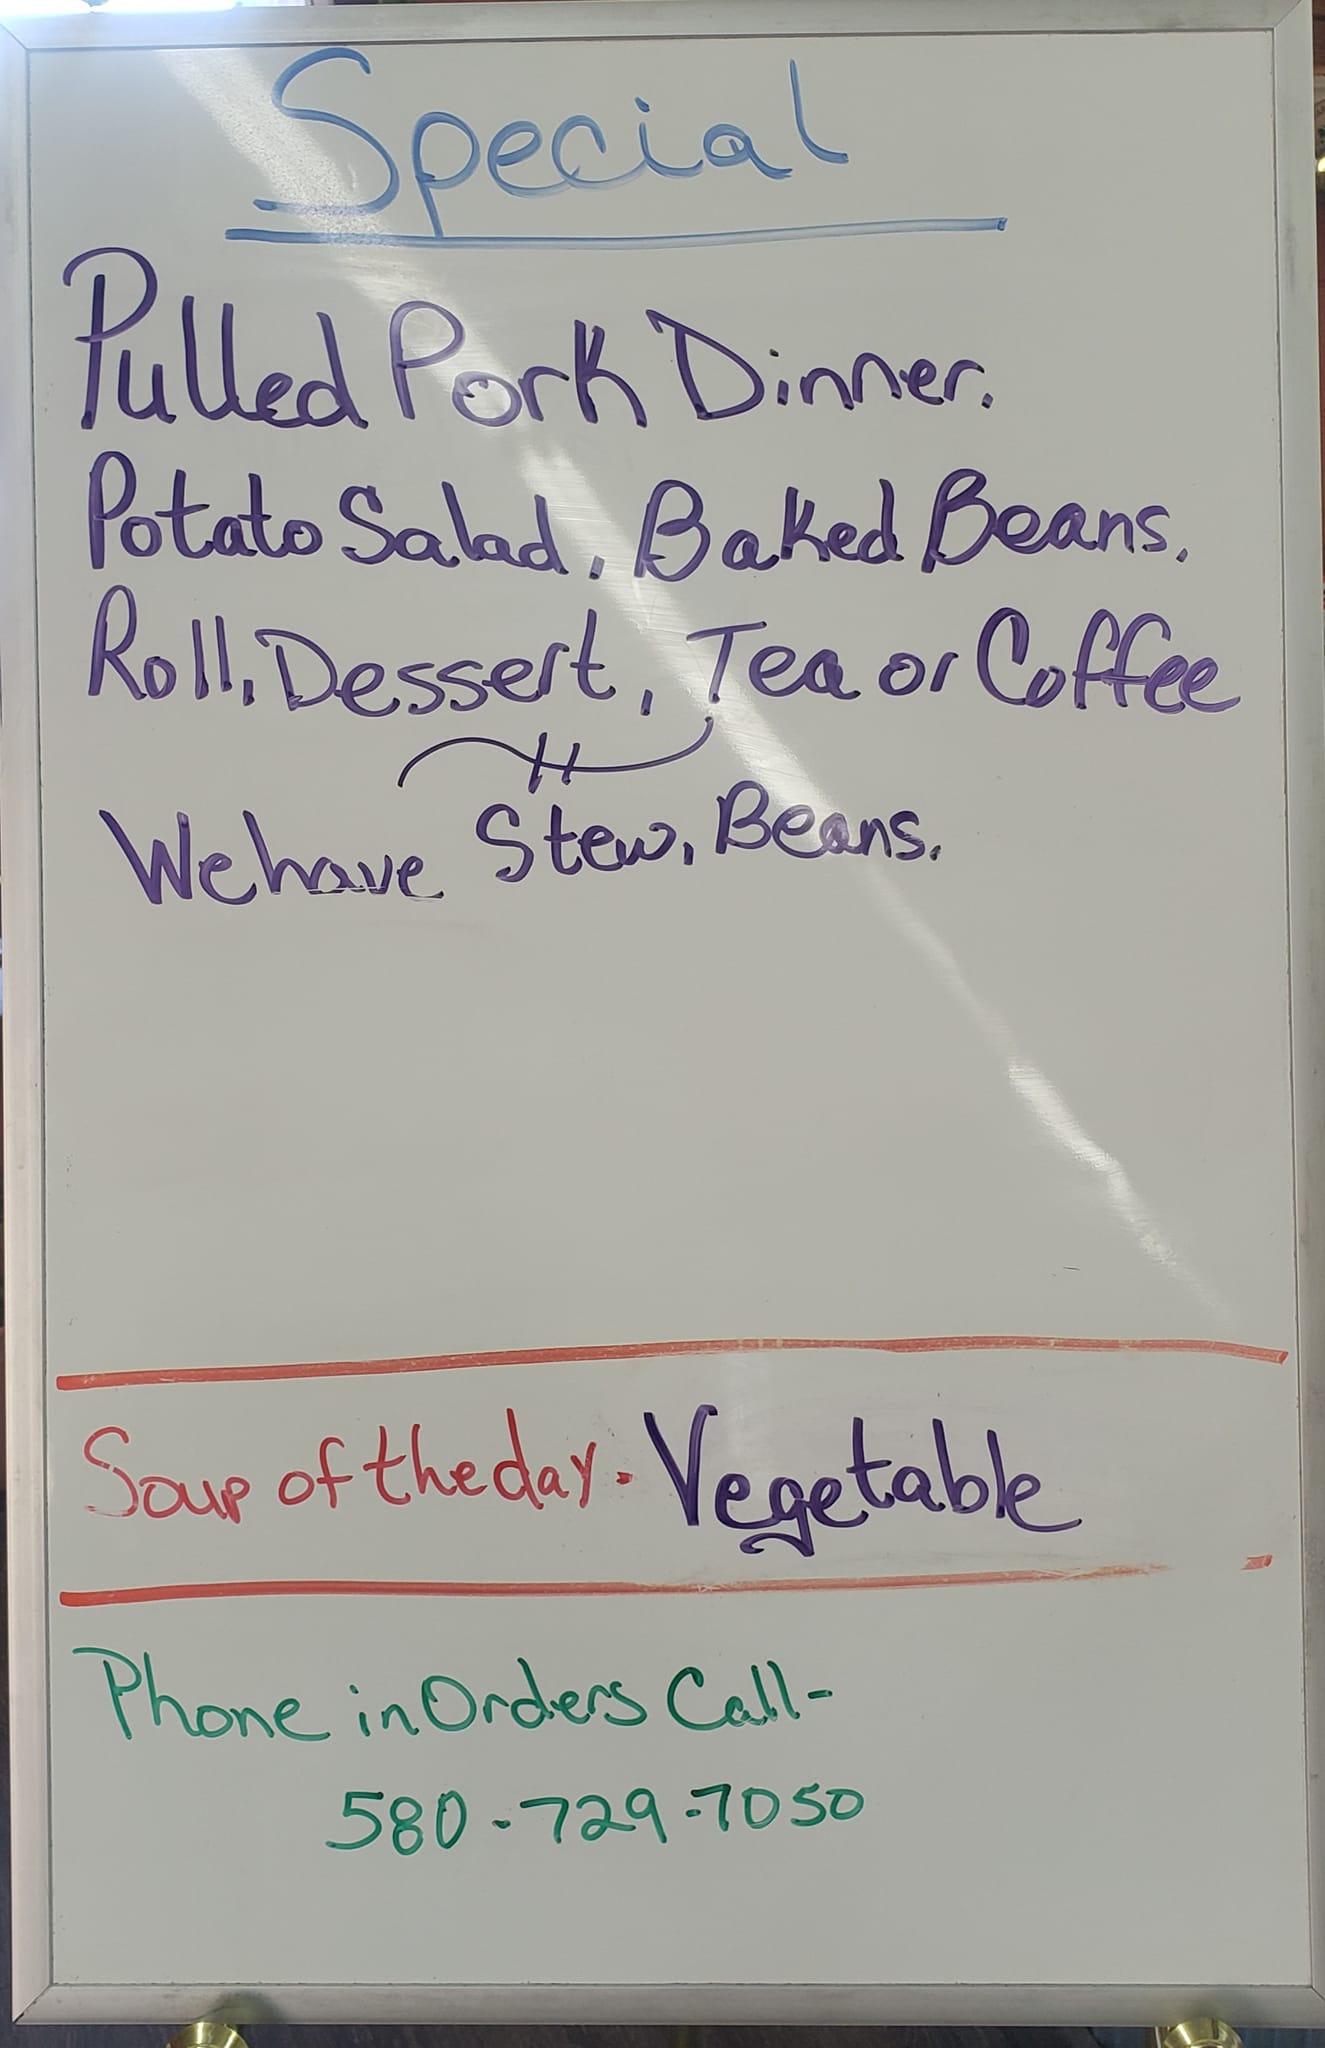 Special
Pulled Pork Dinner.
Potato Salad, Baked Beans.
Roll, Dessert, Tea or Coffee
We have Stew, Beans.
Soup of the day. Vegetable
Phone in Orders Call-
580-729-7050